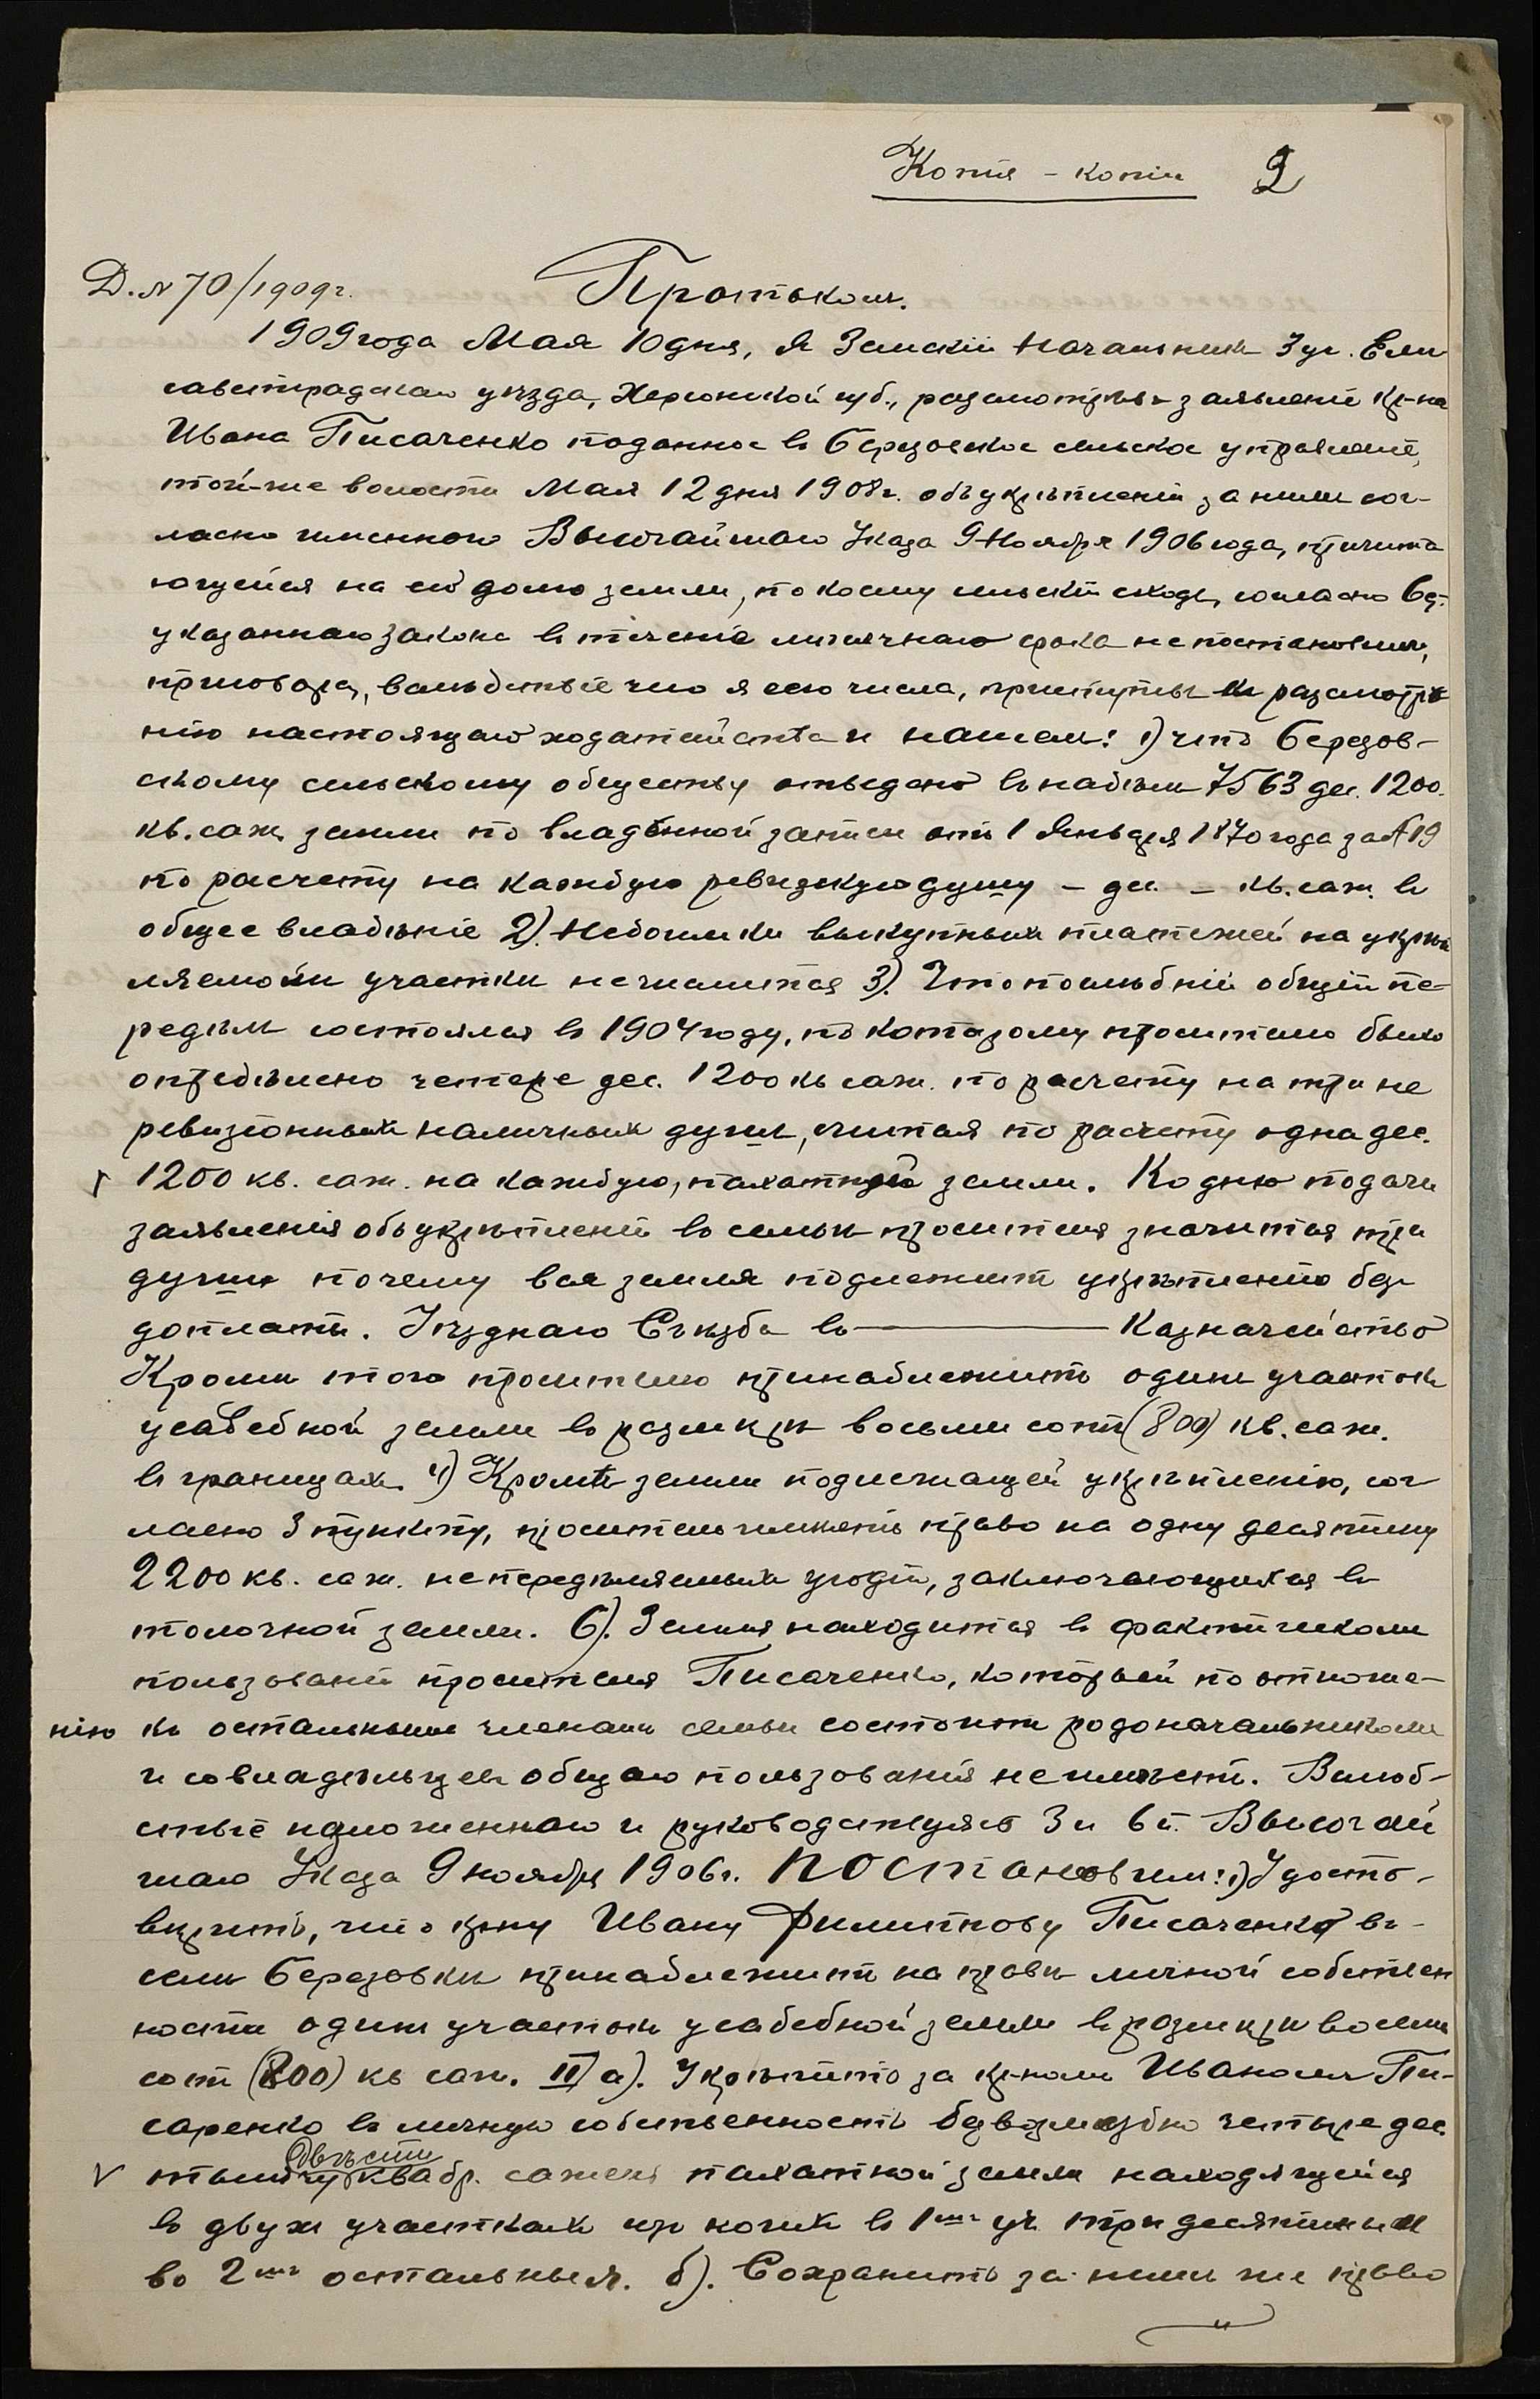 Копія - копіи 2
Д. № 70/1909 г.
Протоколъ.
1909 года Мая 10 дня, Я Земскій Начальникъ 3 уч. Ели
саветградскаго уѣзда, Херсонской губ., разсмотрѣвъ заявленіе кр-на
Ивана Писаченко поданное въ Березовское сельское управленіе,
той-же волости Мая 12 дня 1908 г. объ укрѣпленіи за нимъ сог-
ласно именного Высочайшаго Указа 9 Ноября 1906 года, причита
ющейся на его долю земли, по коему сельскій сходъ, согласно
указаннаго закона въ теченіе мѣсячнаго срока не постановилъ,
приговора, вслѣдствіе чего я сего числа, приступивъ къ разсмотрѣ
нію настоящаго ходатайства и нашелъ: 1) что Березов-
скому сельскому обществу отведено въ надѣлъ 7563 дес. 1200
кв. саж. земли по владѣнной записи отъ 1 Января 1870 года за № 19
по расчету на каждую ревизскую душу - дес. - кв. саж. въ
общее владѣніе 2). Недоимки выкупныхъ платежей на укрѣп
ляемомъ участкѣ не числится 3). Что послѣдній общій пе-
редѣлъ состоялся въ 1904 году, по которому просителю было
опредѣлено четере дес. 1200 кв саж. по расчету на три не
ревизіонныхъ наличныхъ души, считая по расчету одна дес.
1200 кв. саж. на каждую, пахатной земли. Ко дню подачи
заявленія объ укрѣпленіи въ семьѣ просителя значится три
души почему вся земля подлежитъ укрѣпленію безъ
доплаты. Уѣзднаго Съѣзда въ ——— Казначейство
Кромѣ того просителю принадлежитъ одинъ участокъ
усадебной земли въ размѣрѣ восьми сотъ (800) кв. саж.
въ границахъ. 4) Кромѣ земли подлежащей укрѣпленію, сог
ласно 3 пункту, проситель имѣетъ право на одну десятину
2200 кв. саж. непередѣляемыхъ угодій, заключающихся въ
толочной земли. 6). Земля находится въ фактическомъ
пользованіи просителя Писаченко, который по отноше-
нію къ остальнымъ членамъ семьи состоитъ родоначальникомъ
и совладѣльцевъ общаго пользованія не имѣетъ. Вслѣд-
ствіе изложеннаго и руководствуясь 3 и 6 п. Высочай
шаго Указа 9 ноября 1906 г. Постановилъ: 1) Удосто-
вѣрить, что кр-ну Ивану Филиппову Писаченко въ-
селѣ Березовкѣ принадлежитъ на правѣ личной собствен
ности одинъ участокъ усадебной земли въ размѣрѣ восемь
сотъ (800) кв саж. II) а). Укрѣпить за кр-номъ Иваномъ Пи-
саренко въ личную собственность безвозмездно четыре дес.
тысячу двѣсти квадр. сажень пахатной земли находящейся
въ двухъ участкахъ изъ коихъ въ 1мъ уч. три десятины и
во 2мъ остальныя. б). Сохранить за нимъ же право